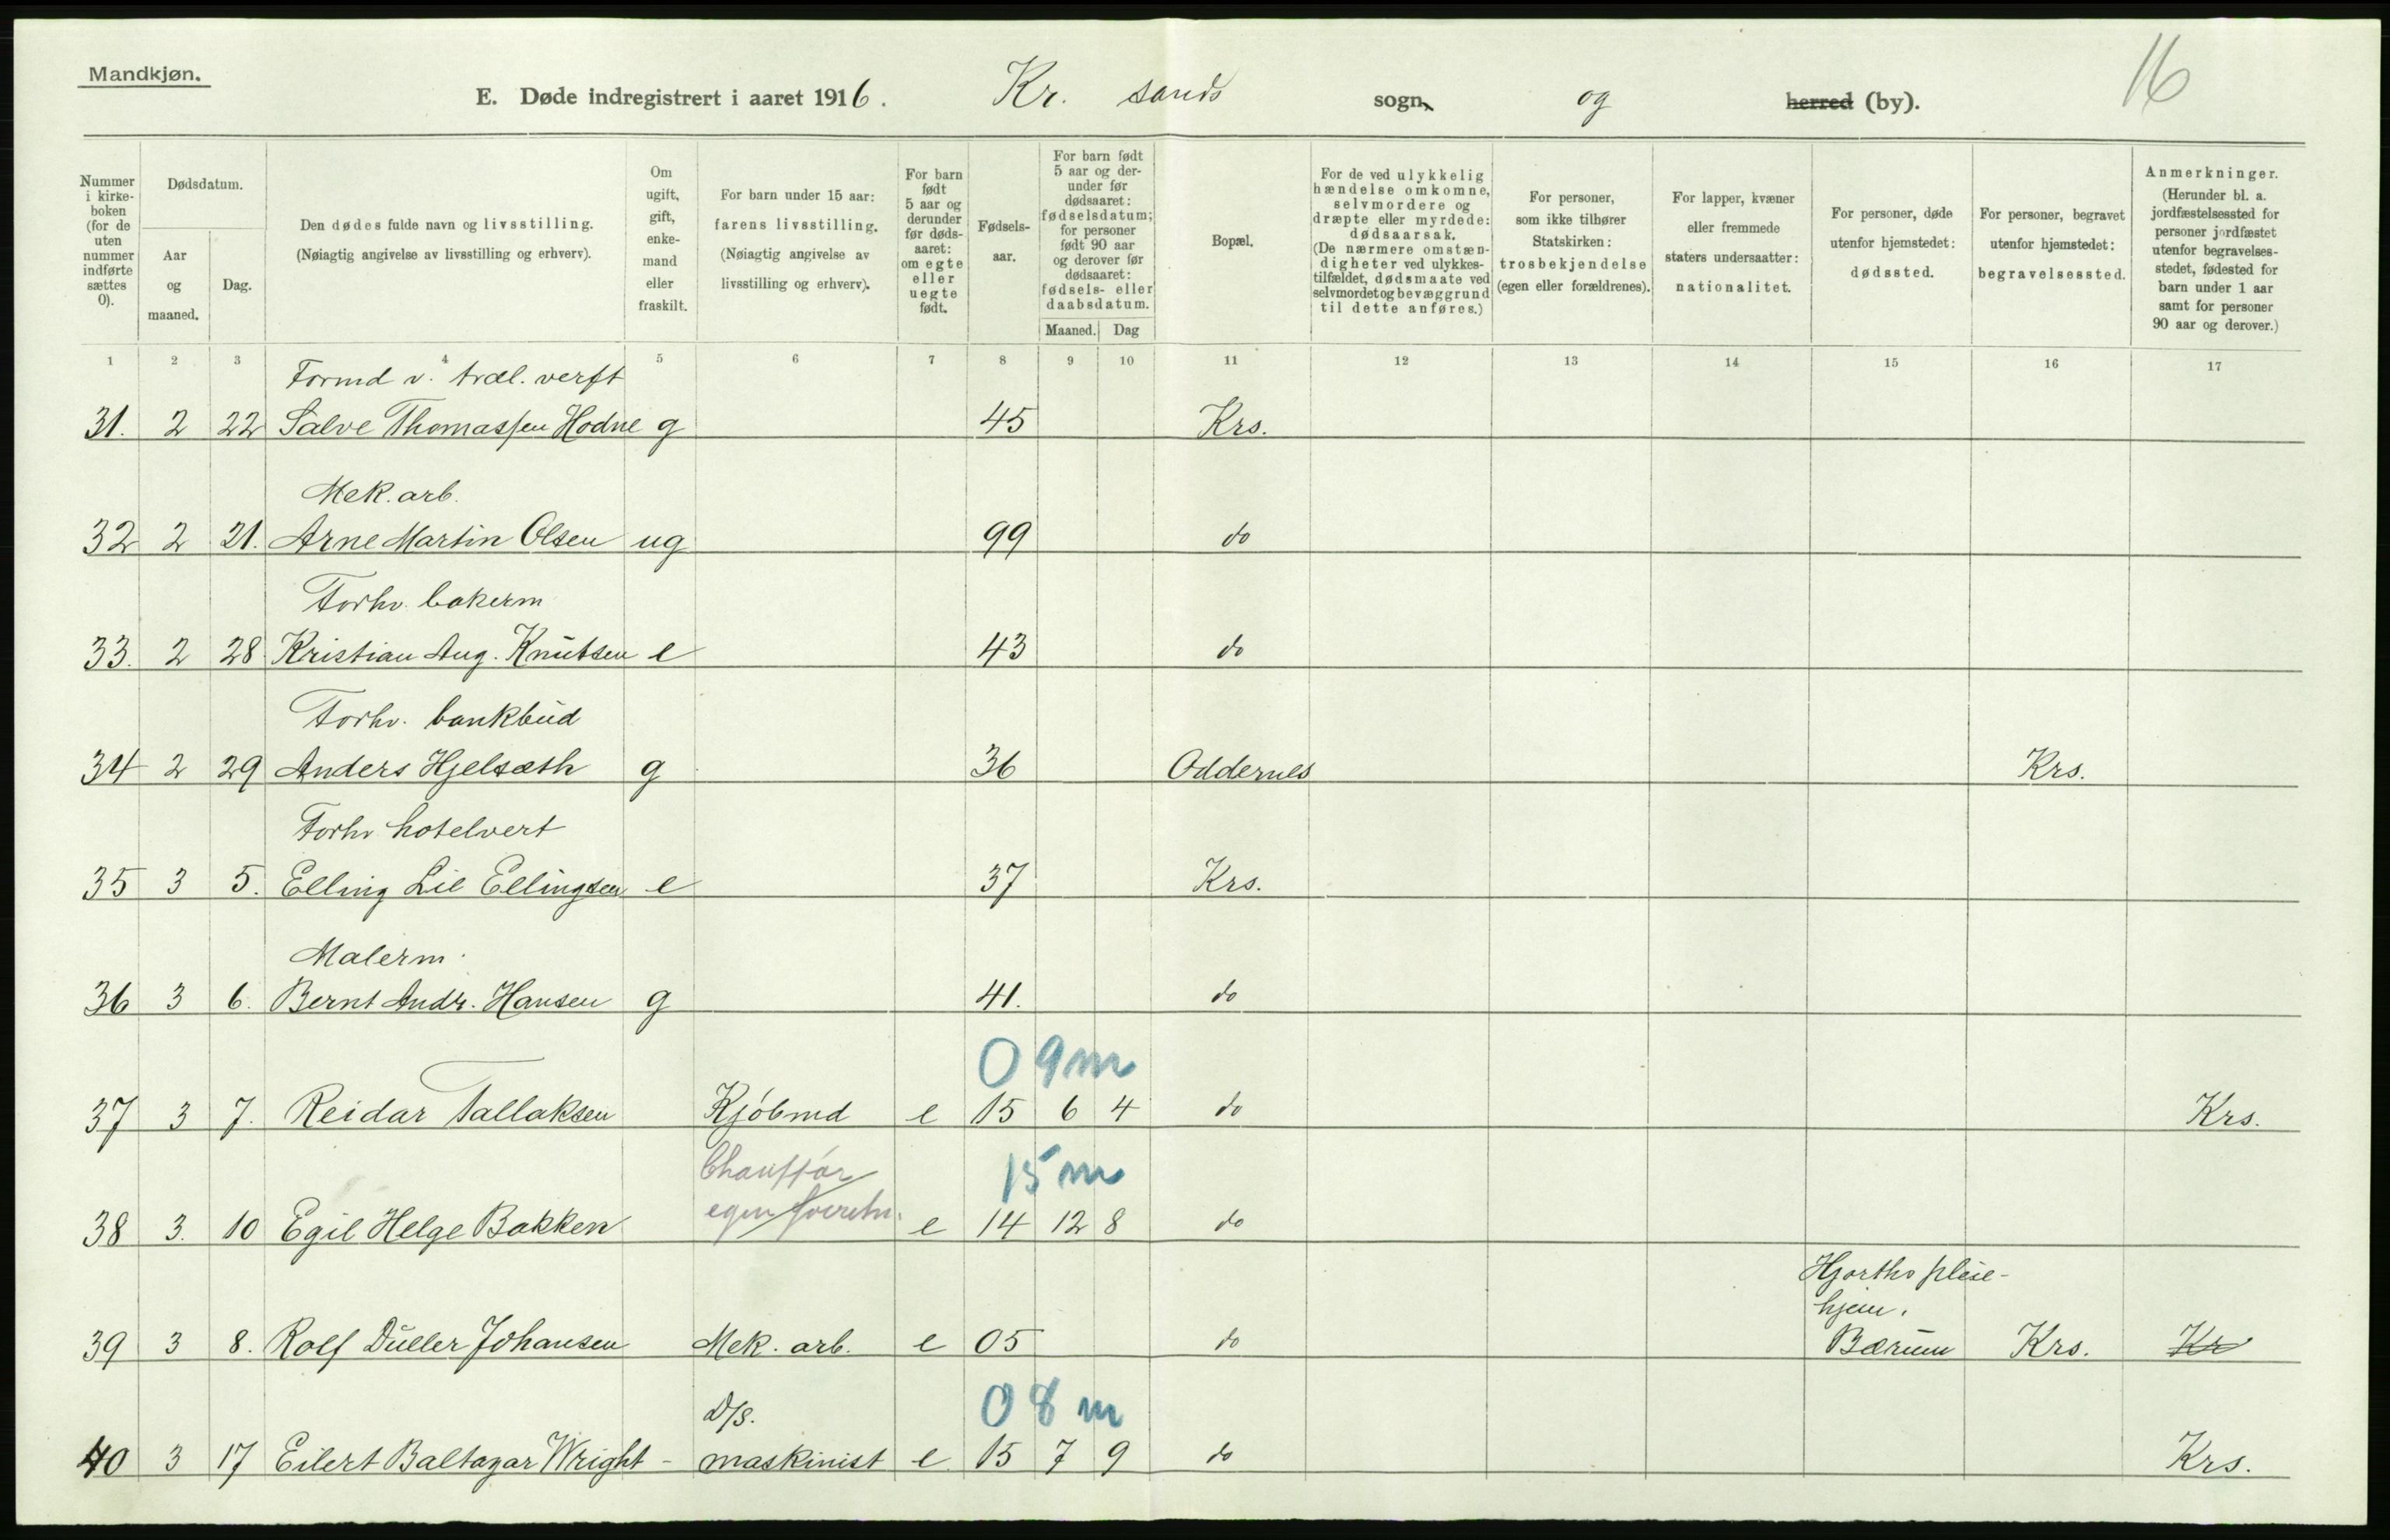 Mandkjøn.
16
E. Døde indregistrert i aaret 1916. Kr. sands sogn og herred (by).
Nummer i kirkeboken (for de uten nummer indførte sættes 0).
Dødsdatum.
Aar og maaned.
Dag.
Den dødes fulde navn og livsstilling.
(Nøiagtig angivelse av livsstilling og erhverv).
Om ugift, gift, enkemand eller fraskilt.
For barn under 15 aar: farens livsstilling.
(Nøiagtig angivelse av livsstilling og erhverv).
For barn født 5 aar og derunder før dødsaaret: om egte eller uegte født.
Fødselsaar.
For barn født 5 aar og derunder før dødsaaret: fødselsdatum; for personer født 90 aar og derover før dødsaaret: fødsels- eller daabsdatum.
Maaned. Dag
Bopæl.
For de ved ulykkelig hændelse omkomne, selvmordere og dræpte eller myrdede: dødsaarsak.
(De nærmere omstændigheter ved ulykkestilfældet, dødsmaate ved selvmordet og bevæggrund til dette anføres.)
For personer, som ikke tilhører Statskirken: trosbekjendelse (egen eller forældrenes).
For lapper, kvæner eller fremmede staters undersaatter: nationalitet.
For personer, døde utenfor hjemstedet: dødssted.
For personer, begravet utenfor hjemstedet: begravelsessted.
Anmerkninger.
(Herunder bl. a. jordfæstelsessted for personer jordfæstet utenfor begravelsesstedet, fødested for barn under 1 aar samt for personer 90 aar og derover.)
1 2 3 4 5 6 7 8 9 10 11 12 13 14 15 16 17
Formd v. træl. verft
31. 2 22 Salve Thomassen Hodne g 45 Krs.
Mek. arb.
32 2 21. Arne Martin Olsen ug 99 do
Forhv. bakerm
33. 2 28 Kristian Aug. Knutsen e 43 do
Forhv. bankbud
34 2 29 Anders Hjelsæth g 36 Oddernes Krs.
Forhv hotelvert
35 3 5. Elling Lie Ellingsen e 37 Krs.
Malerm.
36 3 6. Bernt Andr. Hansen g 41. do
0 9m
37 3 7. Reidar Tallaksen Kjøbmd e 15 6 4 do Krs.
Chauffør 15 m
egen forretn.
38 3. 10 Egil Helge Bakken e 14 12 8 do
Hjorths pleie-
hjem.
39 3 8. Rolf Düller Johansen Mek. arb. e 05 do Bærum Krs. Kr
D/s. 0 8 m
40 3 17 Eilert Baltazar Wright - maskinist e 15 7 9 do Krs.